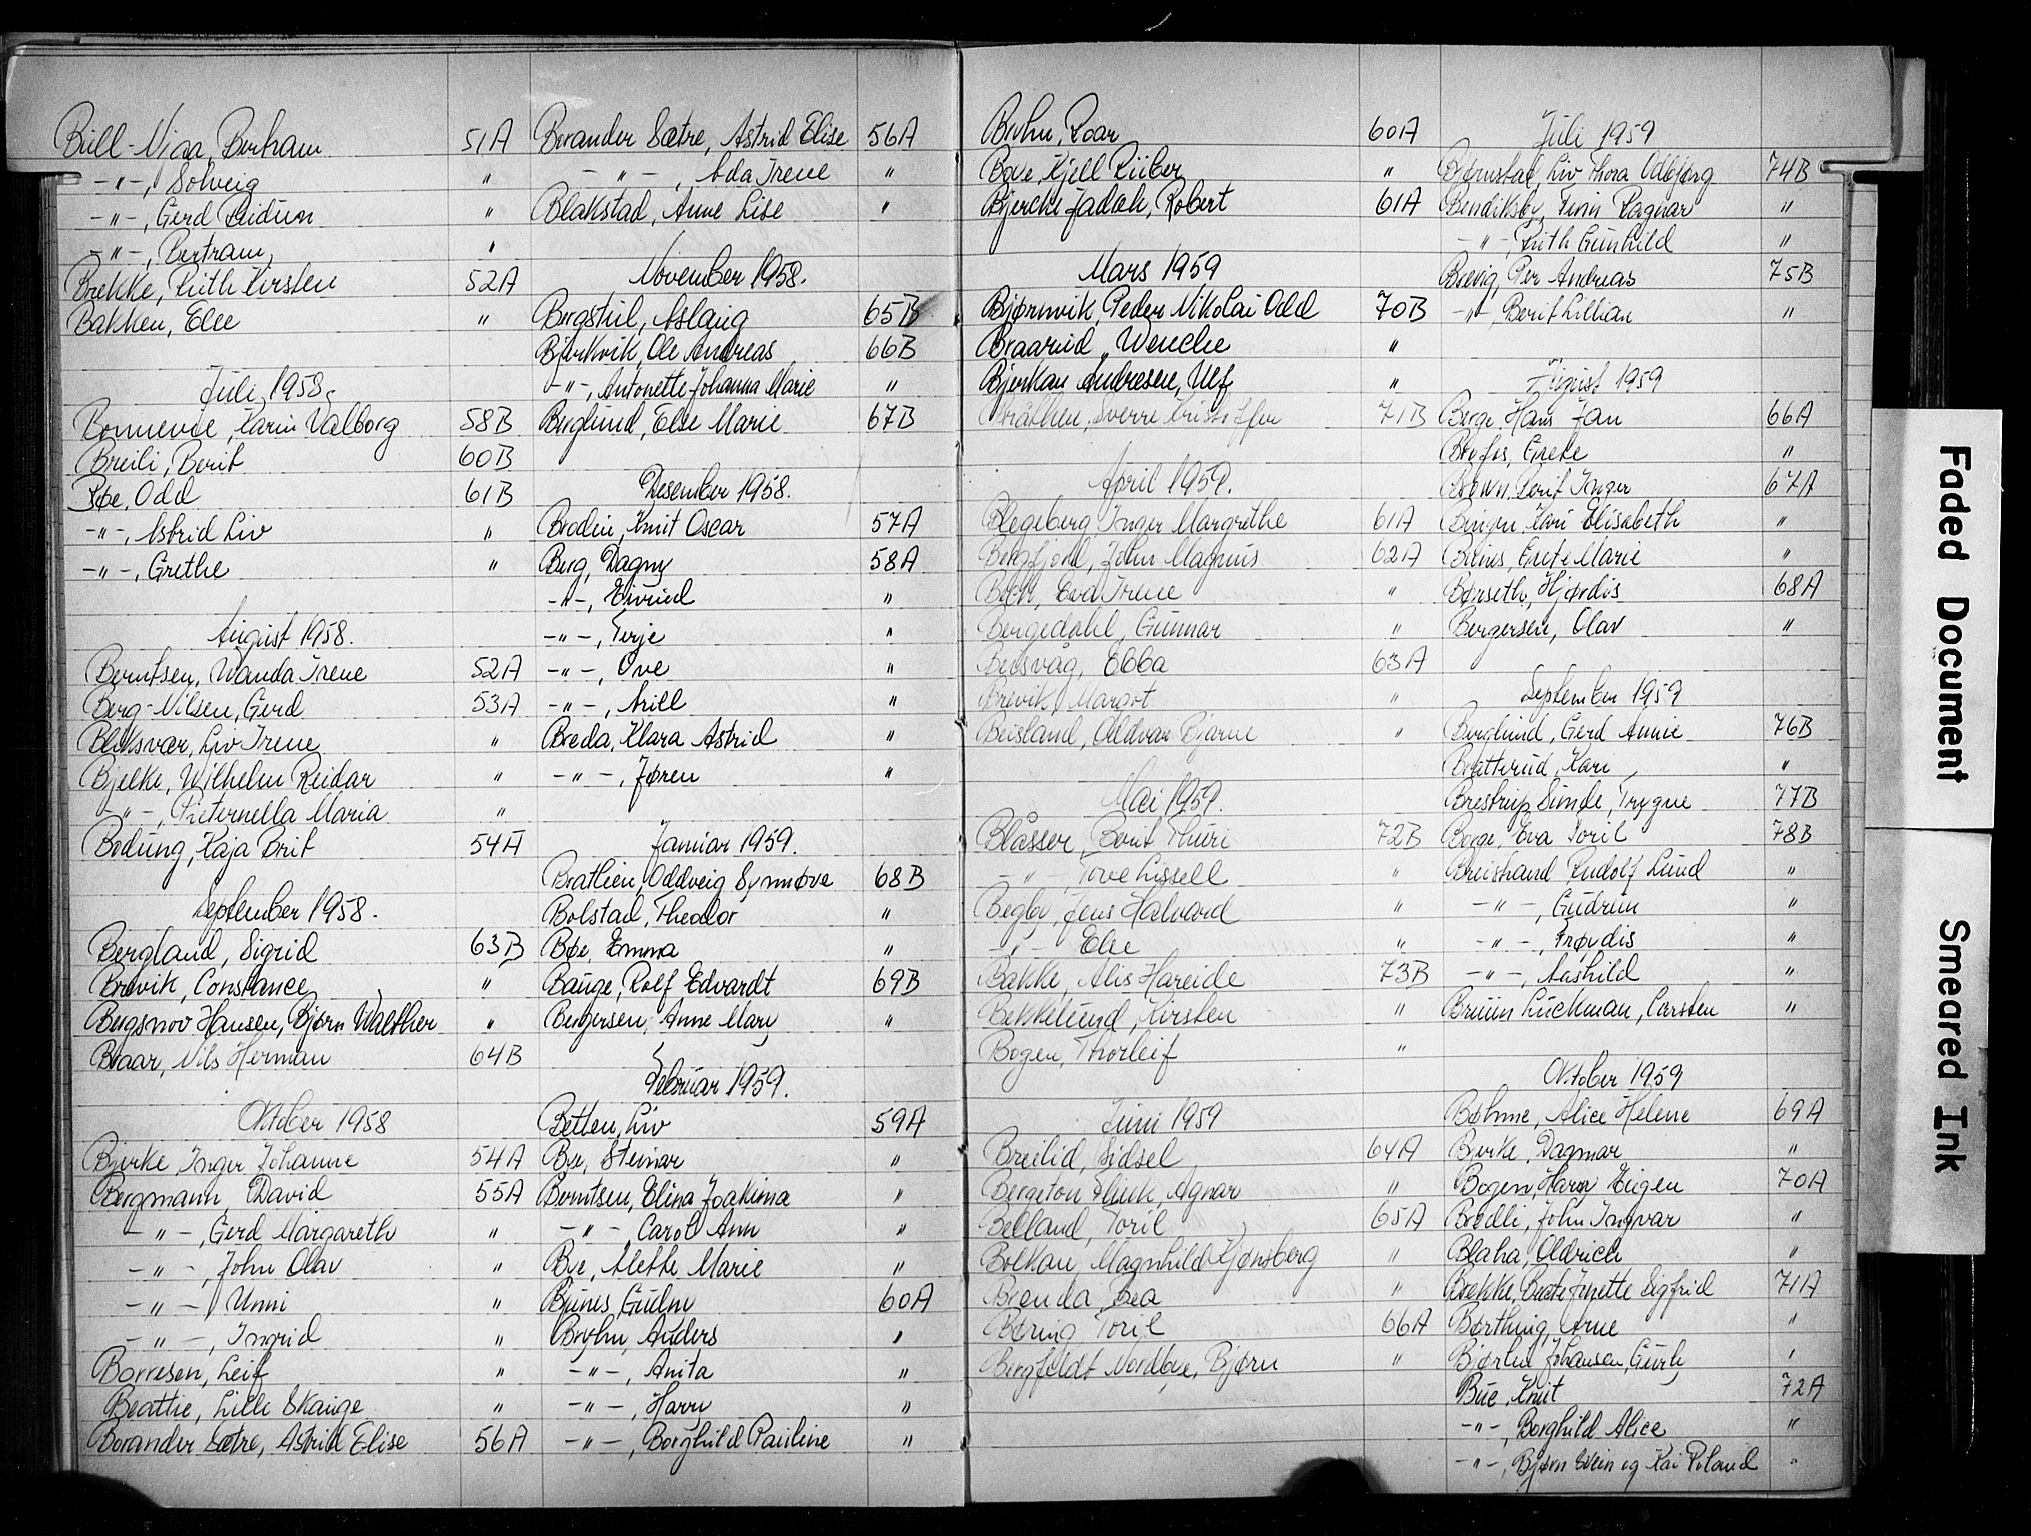 Bull-Njaa, Bertram 51A
-"-, Solveig "
-"-, Gerd Reidun "
-"-, Bertram, "
Brekke, Ruth Kirsten 52A
Bakken, Else "
Juli 1958.
Bonnevie, Karin Valborg 58B
Breili, Berit 60B
Bøe, Odd 61B
-"-, Astrid Liv "
-"-, Grethe "
August 1958.
Berntsen, Wanda Irene 52A
Berg-Nilsen, Gerd 53A
Bleksvær, Liv Irene "
Bjelke, Wilhelm Reidar "
-"-, Pieternella Maria "
Bødung, Kaja Brit 54A
September 1958.
Bergland, Sigrid 63B
Brevik, Constance "
Bergsnov Hansen, Bjørn Walther "
Braar, Nils Herman 64B
Oktober 1958
Bjerke, Inger Johanne 54A
Bergmann, David 55A
-"-, Gerd Margareth "
-"-, John Olav "
-"-, Unni "
-"-, Ingrid "
Borresen, Leif "
Beattie, Lille Skauge "
Borander Sætre, Astrid Elise 56A
Borander Sætre, Astrid Elise 56A
-"-, Ada Irene "
Blakstad, Anne Lise "
November 1958.
Bergstul, Aslaug 65B
Bjerkvik, Ole Andreas 66B
-"-, Antonette Johanna Marie "
Berglund, Else Marie 67B
Desember 1958.
Brodin, Knut Oscar 57A
Berg, Dagny 58A
-"-, Eivind "
-"-, Terje "
-"-, Ove "
-"-, Arill "
Breda, Klara Astrid "
-"-, Jøren "
Januar 1959.
Bratlien, Oddveig Synnøve 68B
Bolstad, Theodor "
Bøe, Emma "
Bauge, Rolf Edvardt 69B
Bergersen, Anne Mary "
Februar 1959.
Betten, Liv 59A
Bye, Steinar "
Berntsen, Elina Joakima "
-"-, Carol Ann "
Bye, Alette Marie "
Bjunes, Gudny 60A
Bryhn, Anders "
-"-, Anita "
-"-, Harry "
-"-, Borghild Pauline "
Bryhn, Roar 60A
Bøve, Kjell Riiber "
Bjercke Jadah, Robert 61A
Mars 1959
Bjørnvik, Peder Nikolai Odd 70B
Braarud, Wenche "
Bjerkan Andresen, Ulf "
Bråthen, Sverre Kristoffer 71B
April 1959.
Blegeberg, Inger Margrethe 61A
Bergfjord, John Magnus 62A
Bech, Eva Irene "
Bergedahl, Gunnar "
Beisvåg, Ebba 63A
Brevik, Margot "
Beisland, Oldvar Bjarne "
Mai 1959.
Blåsser, Berit Thuri 72B
-"- Tove Lissell "
Begby, Jens Halvard "
-"- Else "
Bakke, Alis Hareide 73B
Bekkelund, Kirsten "
Bogen, Thorleif "
Juni 1959
Breilid, Sidsel 64A
Bergeton Flink, Agnar "
Belland, Toril 65A
Bolkan, Magnhild Kjønsberg "
Brenda, Bea "
Børing, Toril 66A
Bergfeldt Nordbye, Bjørn "
Juli 1959
Bjørnstad, Liv Thora Odbjørg 74B
Bendiksby, Finn Ragnar "
-"-, Ruth Gunhild "
Brevig, Per Andreas 75B
-"-, Berit Lillian "
August 1959
Berge Hans Jan 66A
Brofos, Grete "
Brown, Berit Inger 67A
Bingen, Kari Elisabeth "
Bruns, Grete Marie "
Børseth, Hjørdis 68A
Bergersen, Olav "
September 1959
Berglund, Gerd Annie 76B
Bratterud, Kari "
Brestrup Sunde, Trygve 77B
Borge, Eva Toril 78B
Breistrand, Rudolf Lund "
-"-, Gudrun "
-"-, Frøydis "
-"-, Aashild "
Bruun Luckman, Carsten "
Oktober 1959
Bøhme, Alice Helene 69A
Bjerke, Dagmar "
Bogen, Harry Eigen 70A
Brødli, John Ingvar "
Blaha, Oldrich "
Brekke, Beate Jynette Sigfrid 71A
Børthing, Arne "
Bjørlin Johansen, Guri "
Bue, Knut 72A
-"-, Borghild Alice "
-"-, Bjørn Svein og Kai Roland "
Faded Document
Smeared Ink